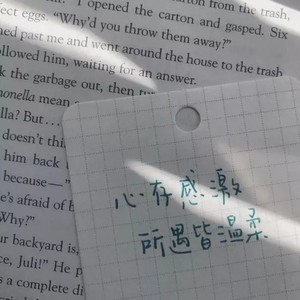 carton from the trash,
I opened the carton and gasped. Six
ect eggs. "Why'd you throw them away?"
ned past me and went around the house to the trash
ollowed him, waiting for an answer.
k the garbage out, then tu
monella mean
lla? But . . .
doesn't thin
him back
because—"
e's afraid of h
Why?"
ur backyard is,
ce, Juli!" He p
s a complete di
心存感激
所遇皆温柔